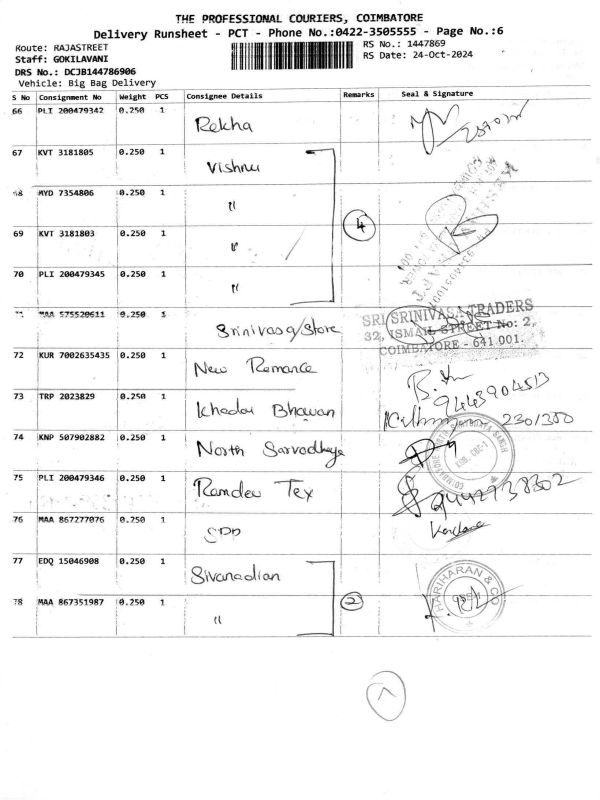 THE PROFESSIONAL COURIERS, COIMBATORE
Delivery Runsheet - PCT - Phone No.:0422-3505555 - Page No.:6
Route: RAJASTREET
RS No.: 1447869
Staff: GOKILAVANI
RS Date: 24-Oct-2024
DRS No.: DCJB144786906
Vehicle: Big Bag Delivery
S No Consignment No Weight PCS Consignee Details Remarks Seal & Signature
66 PLI 200479342 0.250 1 Rekha
67 KVT 3181805 0.250 1 Vishnu
68 MYD 7354806 0.250 1 "
4
69 KVT 3181803 0.250 1 "
70 PLI 200479345 0.250 1 "
71 MAA 575520611 0.250 1 Srinivasa Store
SRI SRINIVASA TRADERS
32, ISMAIL STREET No: 2,
COIMBATORE - 641 001.
72 KUR 7002635435 0.250 1 New Romance
9443904513
73 TRP 2023829 0.250 1 Khadai Bhawan
2301300
74 KNP 507902882 0.250 1 North Sarvodhaya
75 PLI 200479346 0.250 1 Ramdev Tex
76 MAA 867277076 0.250 1
77 EDQ 15046908 0.250 1 Sivanadian
HARIHARAN & CO
78 MAA 867351987 0.250 1 " 2